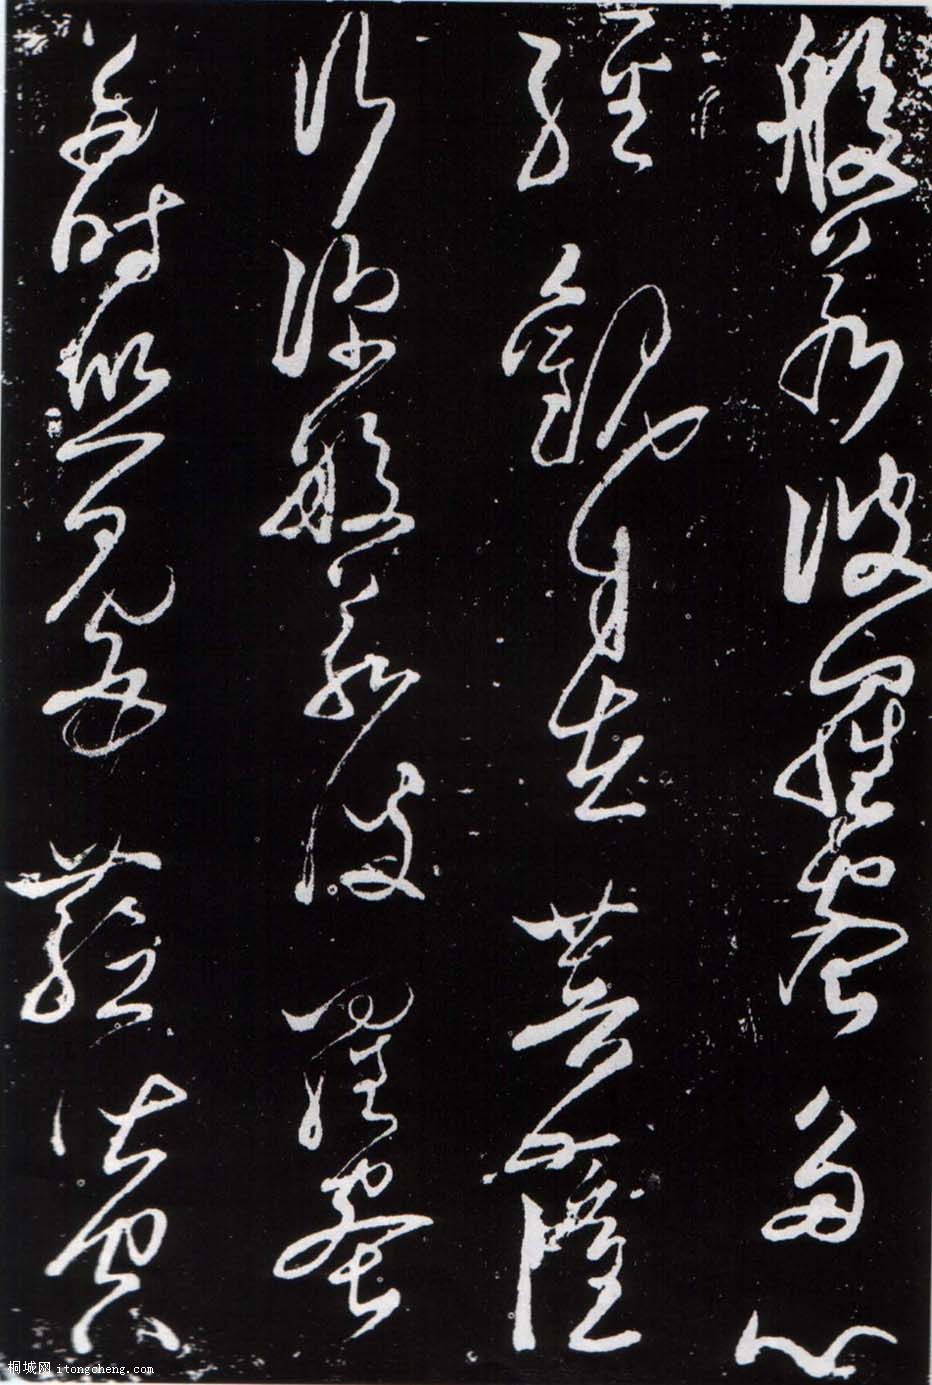 般若波羅蜜多心
經觀自在菩薩
行深般若波羅蜜
多時照見五蘊皆空
桐城网 itongcheng.com